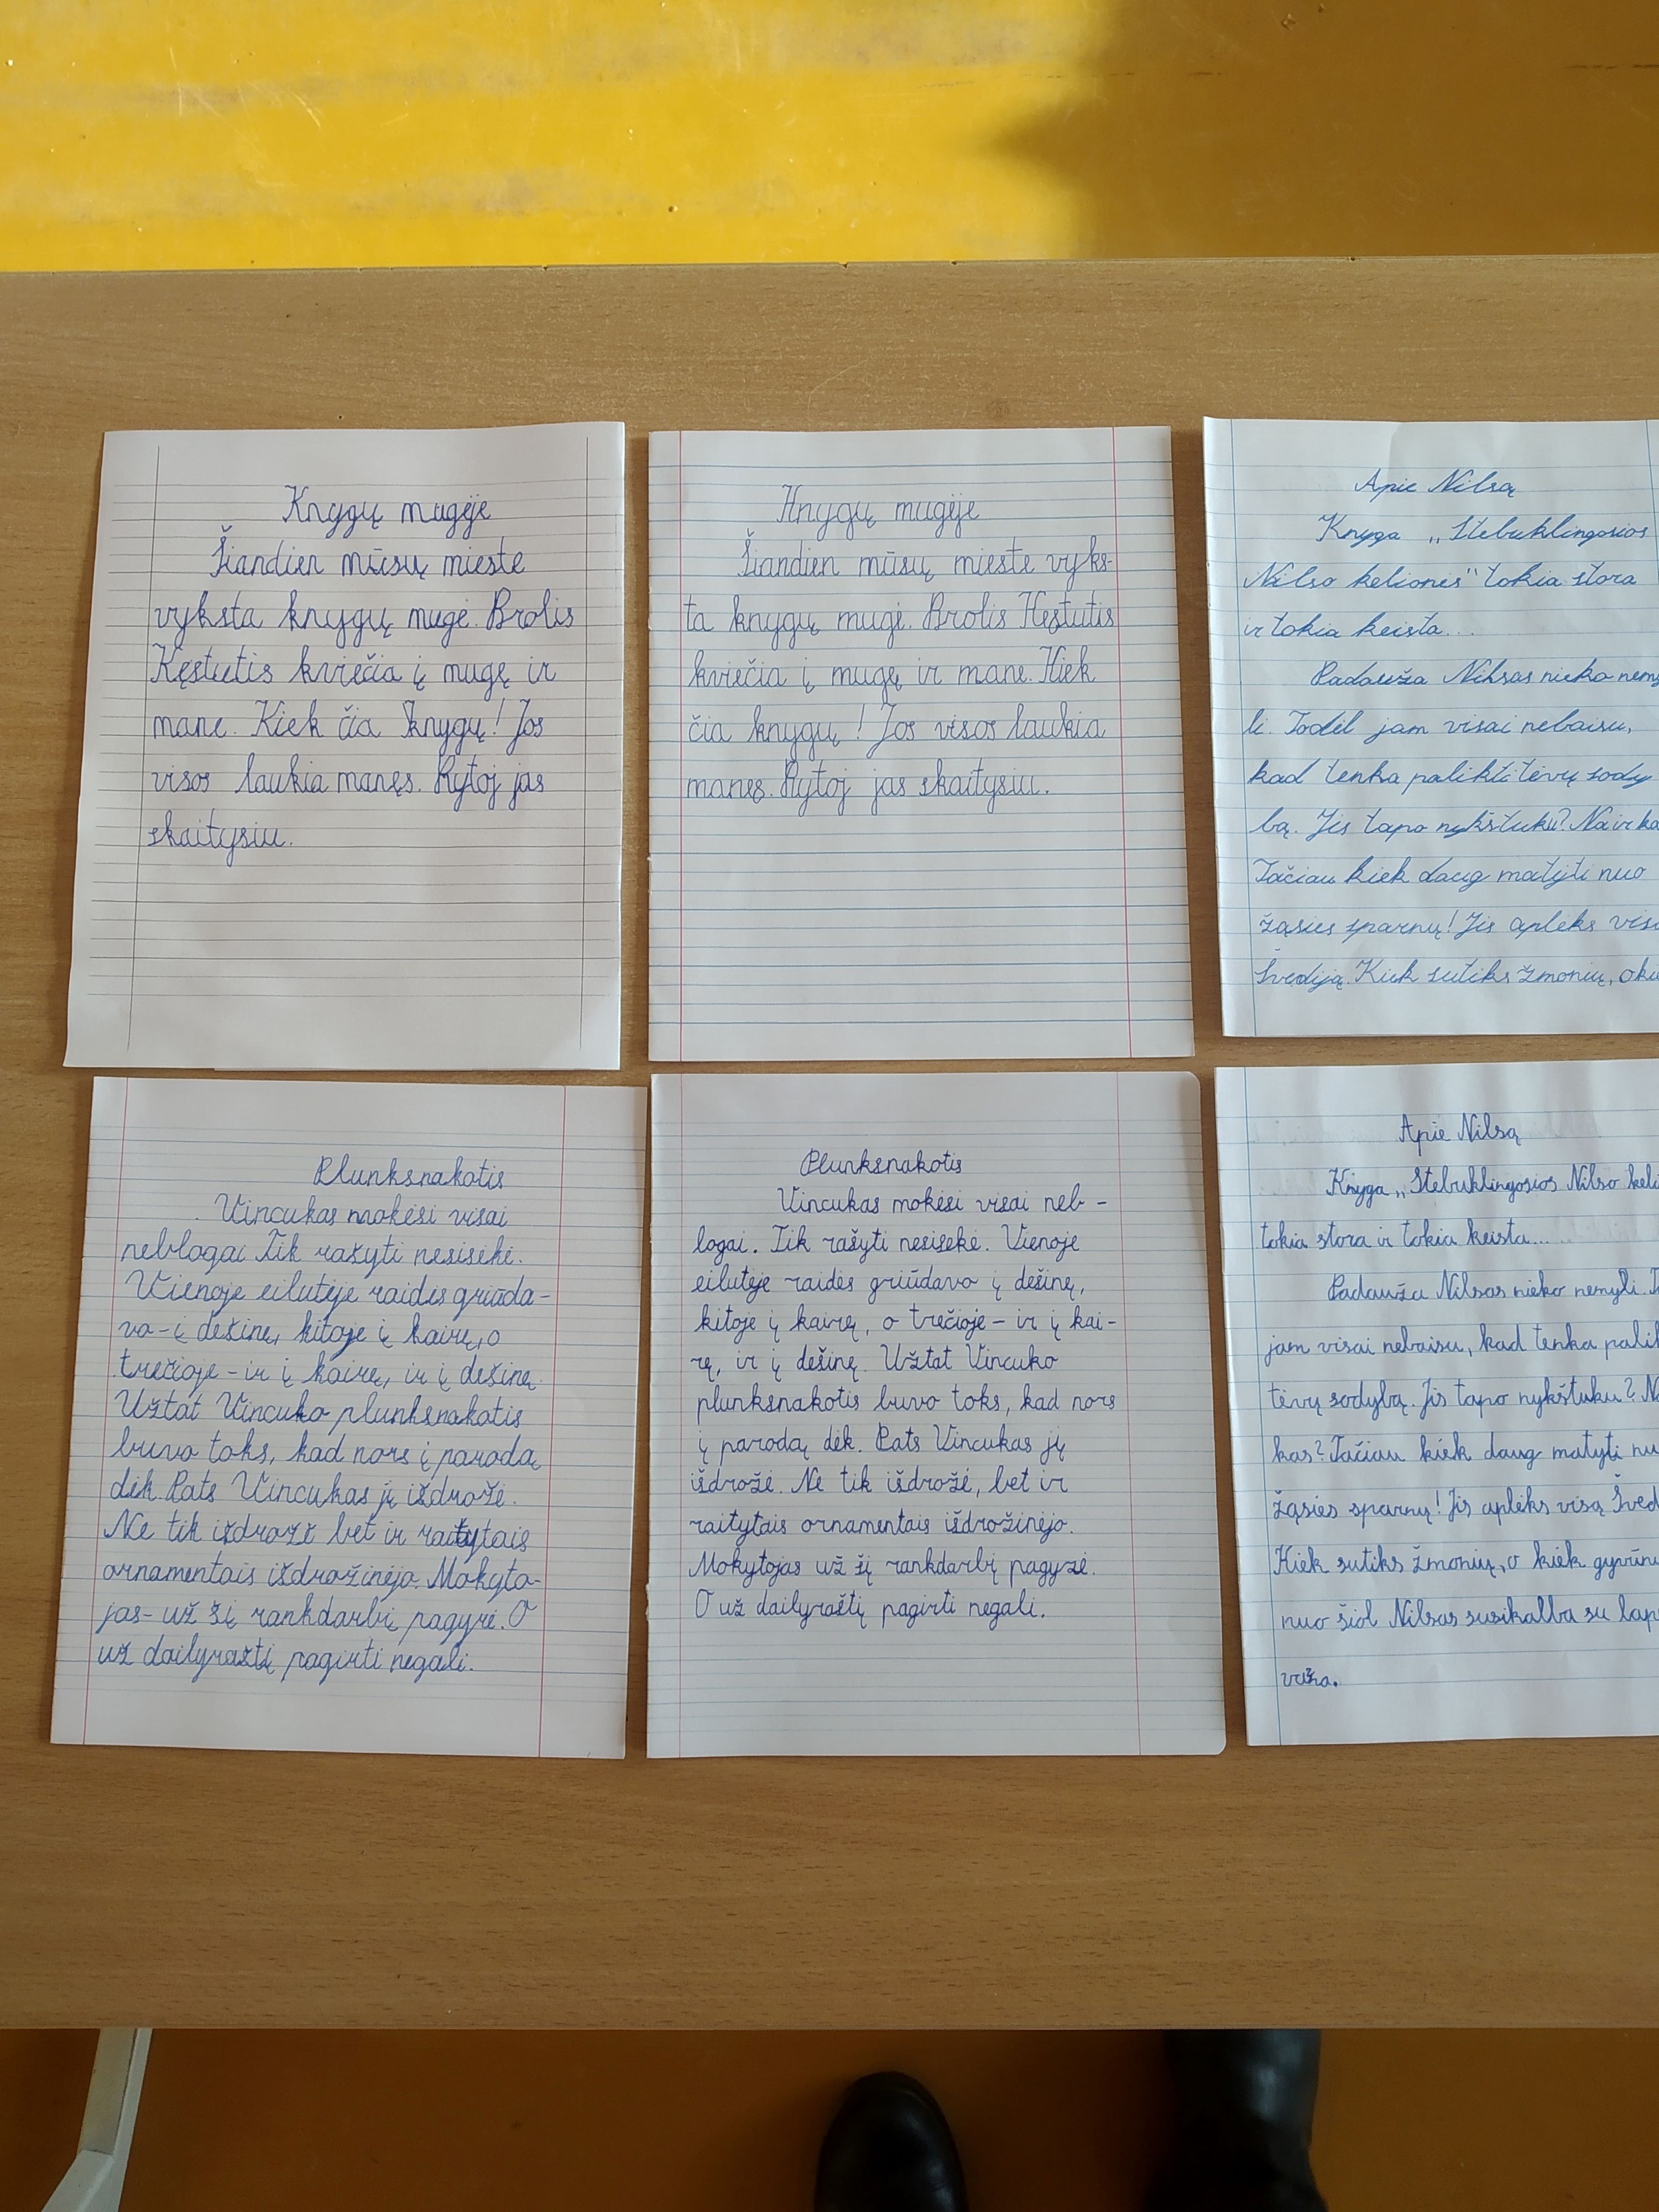 Knygų mugėje
Šiandien mūsų mieste
vyksta knygų mugė. Brolis
Kęstutis kviečia į mugę ir
mane. Kiek čia knygų! Jos
visos laukia manęs. Rytoj jas
skaitysiu.
Knygų mugėje
Šiandien mūsų mieste vyks-
ta knygų mugė. Brolis Kęstutis
kviečia į mugę ir mane. Kiek
čia knygų! Jos visos laukia
manęs. Rytoj jas skaitysiu.
Apie Nilsą
Knyga „Stebuklingosios
Nilso kelionės" tokia stora
ir tokia keista...
Padauža Nilsas nieko nemy
li. Todėl jam visai nebaisu,
kad tenka palikti tėvų sody
bą. Jis tapo nykštuku? Na ir ka
Tačiau kiek daug matyti nuo
žąsies sparnų! Jis apleks vis
Švediją. Kiek sutiks žmonių, o ki
Plunksnakotis
Vincukas mokėsi visai
neblogai. Tik rašyti nesisekė.
Vienoje eilutėje raidės griūda-
vo-į dešinę, kitoje į kairę, o
trečioje - ir į kairę, ir į dešinę.
Užtat Vincuko plunksnakotis
buvo toks, kad nors į parodą
dėk. Pats Vincukas jį išdrožė.
Ne tik išdrožė bet ir raitytais
ornamentais išdrožinėjo. Mokyto-
jas- už šį rankdarbį pagyrė. O
už dailyraštį pagirti negali.
Plunksnakotis
Vincukas mokėsi visai neb-
logai. Tik rašyti nesisekė. Vienoje
eilutėje raidės griūdavo į dešinę,
kitoje į kairę, o trečioje - ir į kai-
rę, ir į dešinę. Užtat Vincuko
plunksnakotis buvo toks, kad nors
į parodą dėk. Pats Vincukas jį
išdrožė. Ne tik išdrožė, bet ir
raitytais ornamentais išdrožinėjo.
Mokytojas už šį rankdarbį pagyrė.
O už dailyraštį pagirti negali.
Apie Nilsą
Knyga „Stebuklingosios Nilso keli
tokia stora ir tokia keista...
Padauža Nilsas nieko nemyli. T
jam visai nebaisu, kad tenka palik
tėvų sodybą. Jis tapo nykštuku? N
kas? Tačiau kiek daug matyti nu
žąsies sparnų! Jis apleks visą Šved
Kiek sutiks žmonių, o kiek gyvūnų
nuo šiol Nilsas susikalba su lap